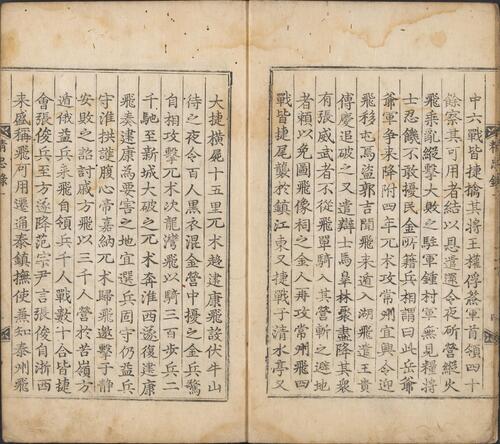 中六戰皆捷擒其將王權俘僉軍首領四十
餘察其可用者結以恩遣還令夜斫營縱火
飛乘亂縱擊大敗之駐軍鍾村軍無見糧將
士忍饑不敢擾民金所籍兵相謂曰此岳爺
爺軍爭来降附四年兀术攻常州宜興令迎
飛移屯焉盜郭吉聞飛来遁入湖飛遣王貴
傅慶追破之又遣辯士馬皋林聚盡降其衆
有張威武者不從飛單騎入其營斬之避地
者賴以免圖飛像祠之金人再攻常州飛四
戰皆捷尾襲於鎮江東又捷戰于清水亭又
大捷橫屍十五里兀术趨建康飛設伏牛山
待之夜令百人黑衣混金營中擾之金兵驚
自相攻擊兀术次龍灣飛以騎三百步兵二
千馳至新城大破之兀术奔淮西遂復建康
飛奏建康為要害之地宜選兵固守仍益兵
守淮拱護腹心帝嘉納兀术歸飛邀擊于靜
安敗之詔討戚方飛以三千人營於苦嶺方
遁俄益兵来飛自領兵千人戰數十合皆捷
會張俊兵至方遂降范宗尹言張俊自浙西
来盛稱飛可用遷通泰鎮撫使兼知泰州飛
精忠錄